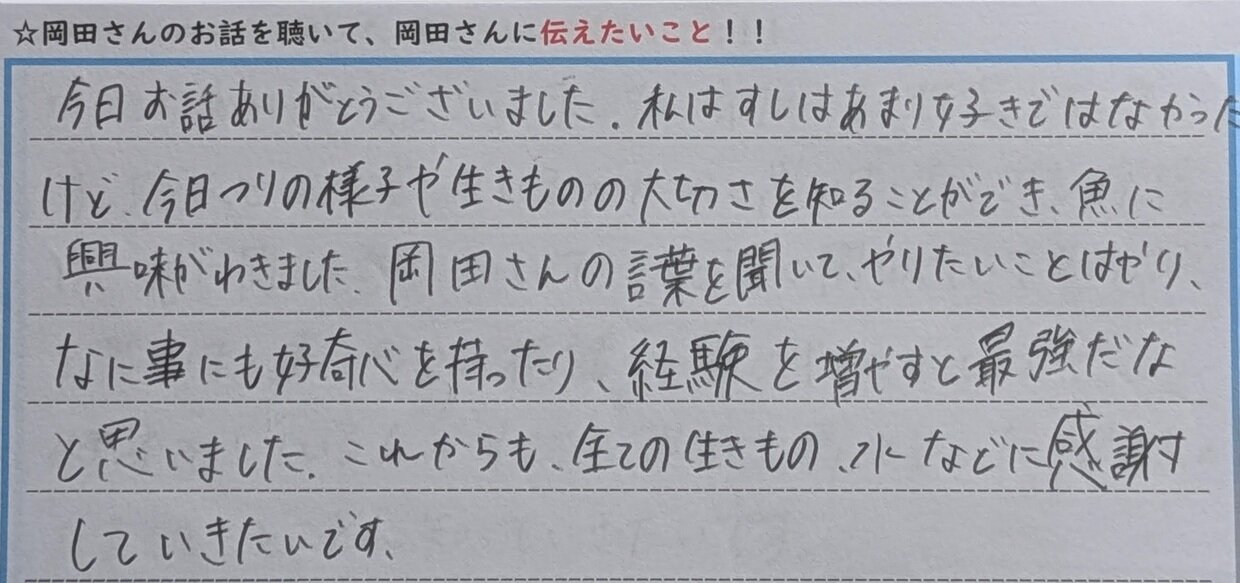 ☆岡田さんのお話を聴いて、岡田さんに伝えたいこと！！
今日お話ありがとうございました。私はすしはあまり好きではなかった
けど、今日つりの様子や生きものの大切さを知ることができ、魚に
興味がわきました。岡田さんの言葉を聞いて、やりたいことはやり、
なに事にも好奇心を持ったり、経験を増やすと最強だな
と思いました。これからも、全ての生きもの、水などに感謝す
していきたいです。